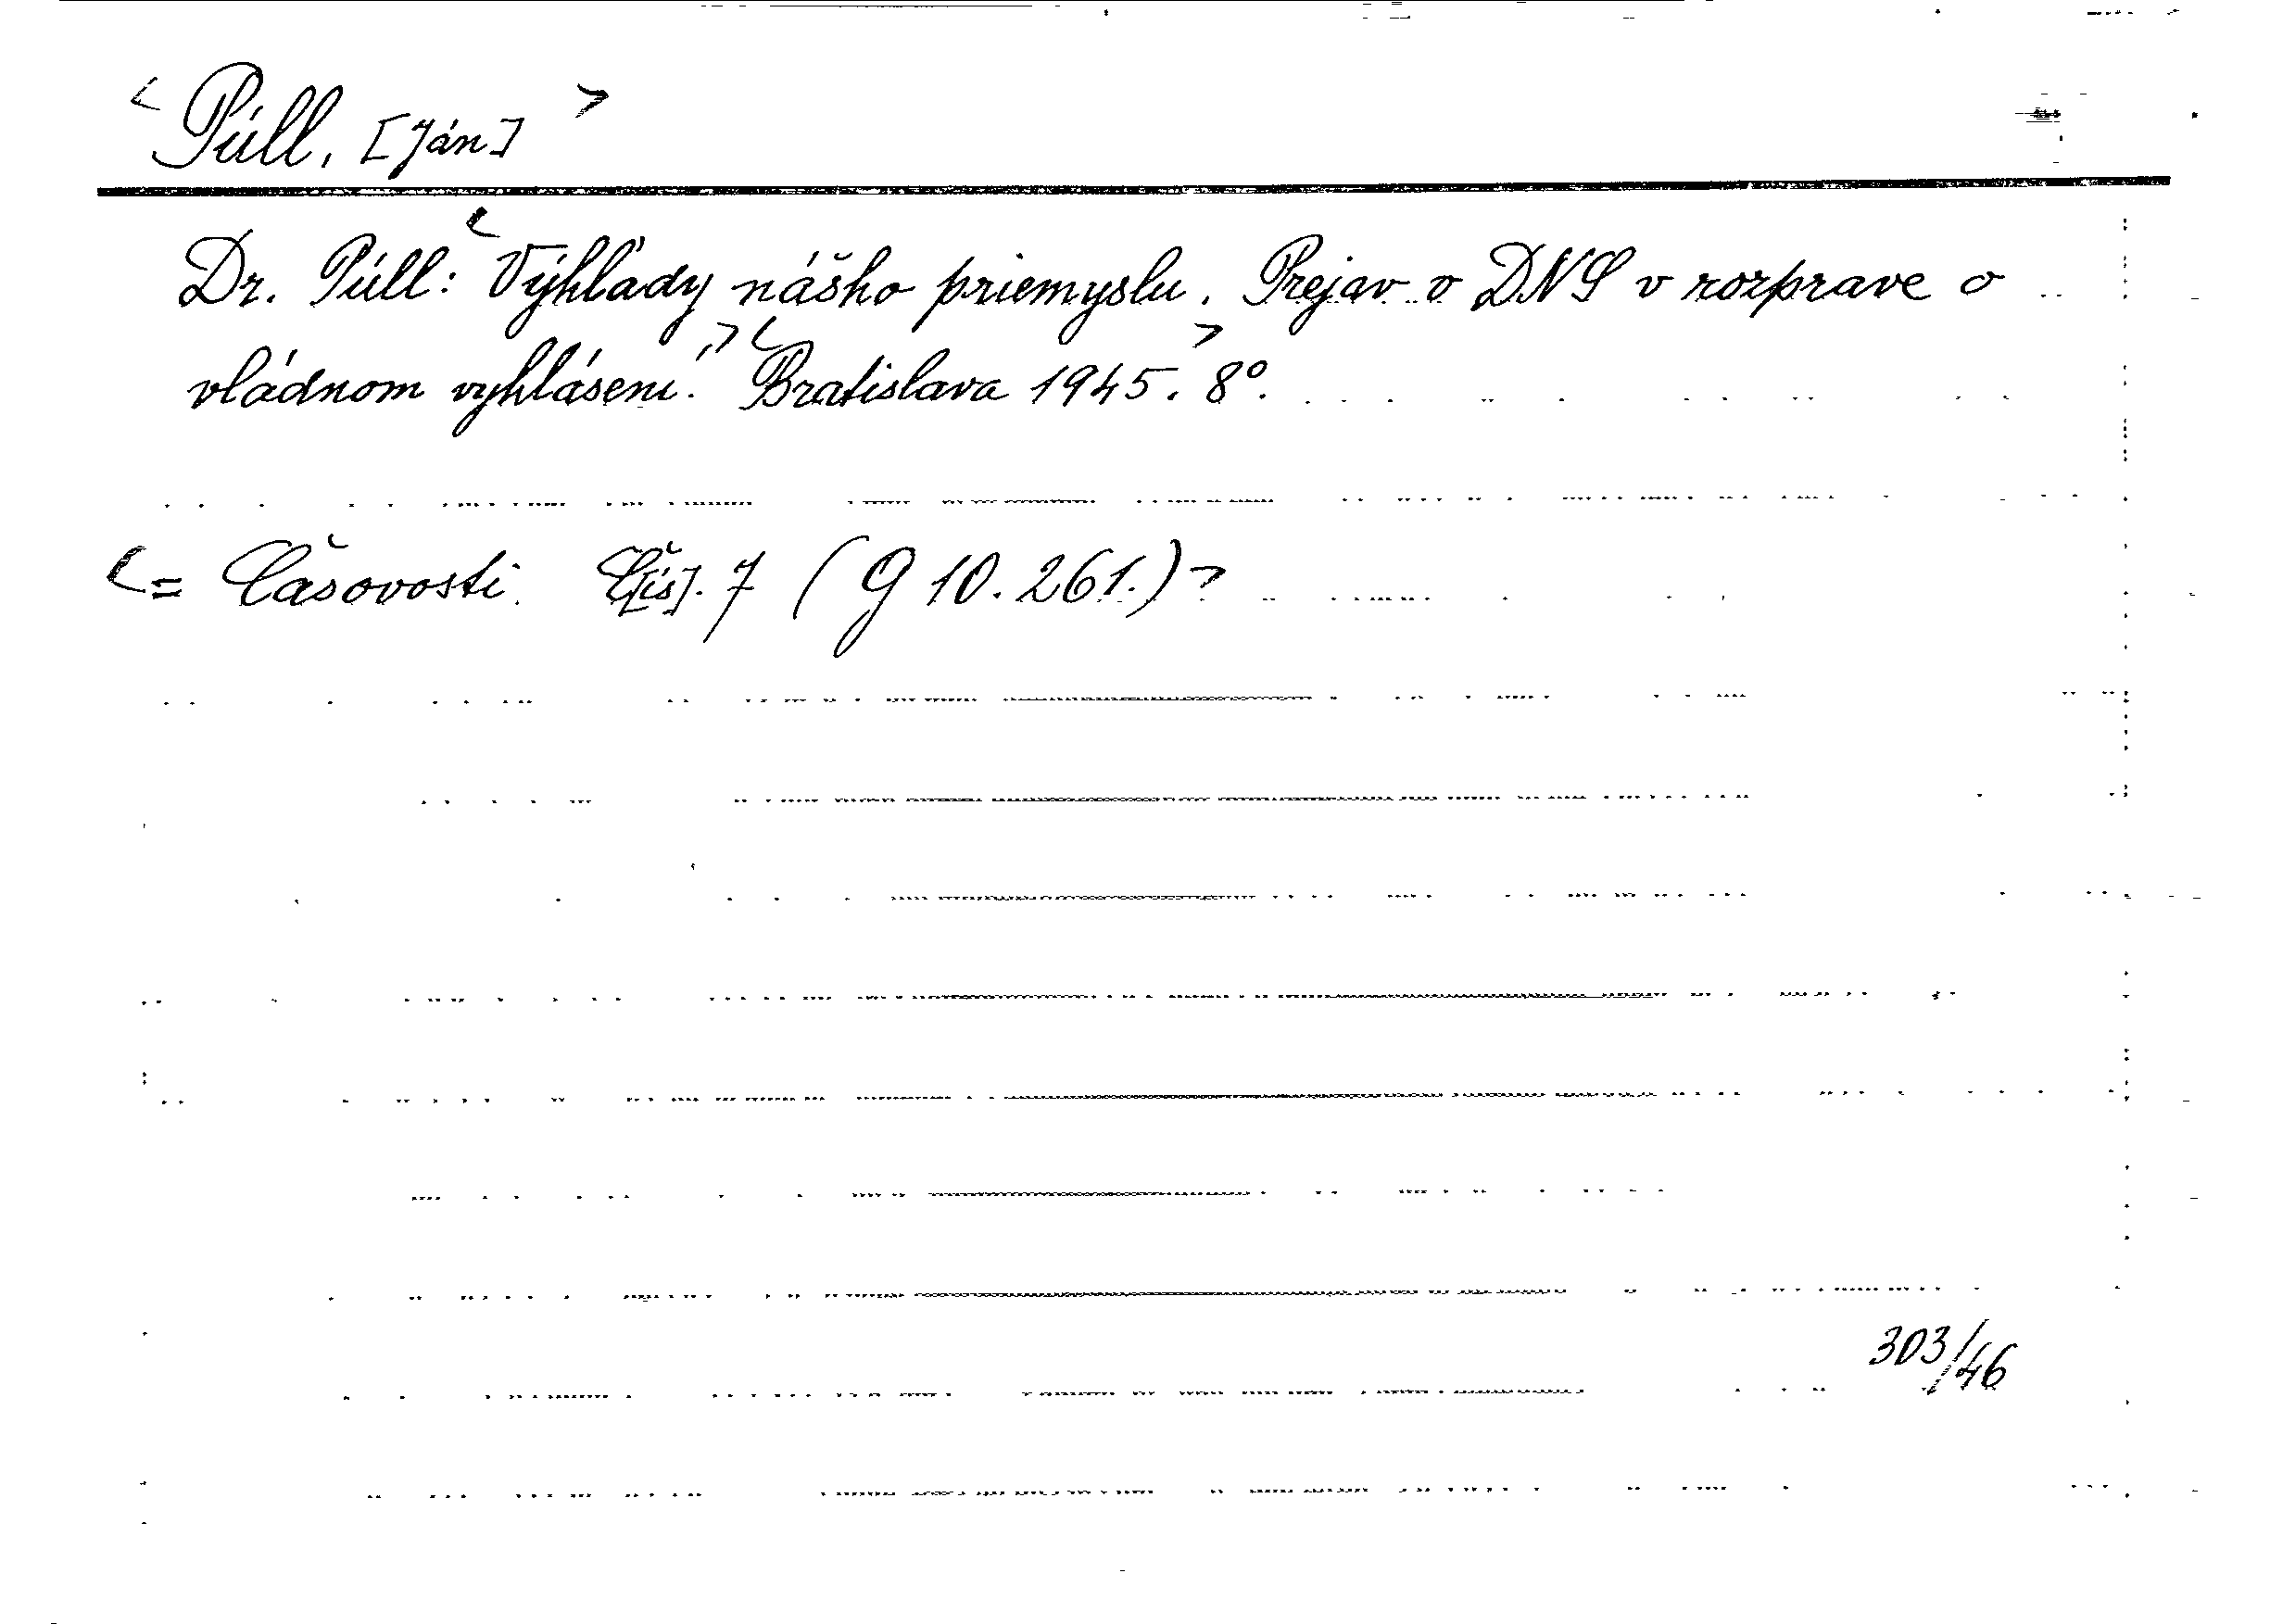 < Púll, [Ján] >
Dr. Púll: < Výhľady nášho priemyslu. Prejav v DNS v rozprave o
vládnom vyhlásení. > < Bratislava 1945. > 8°.
< = Časovosti. Č[ís]. 7 (G 10.261.) >
303/46